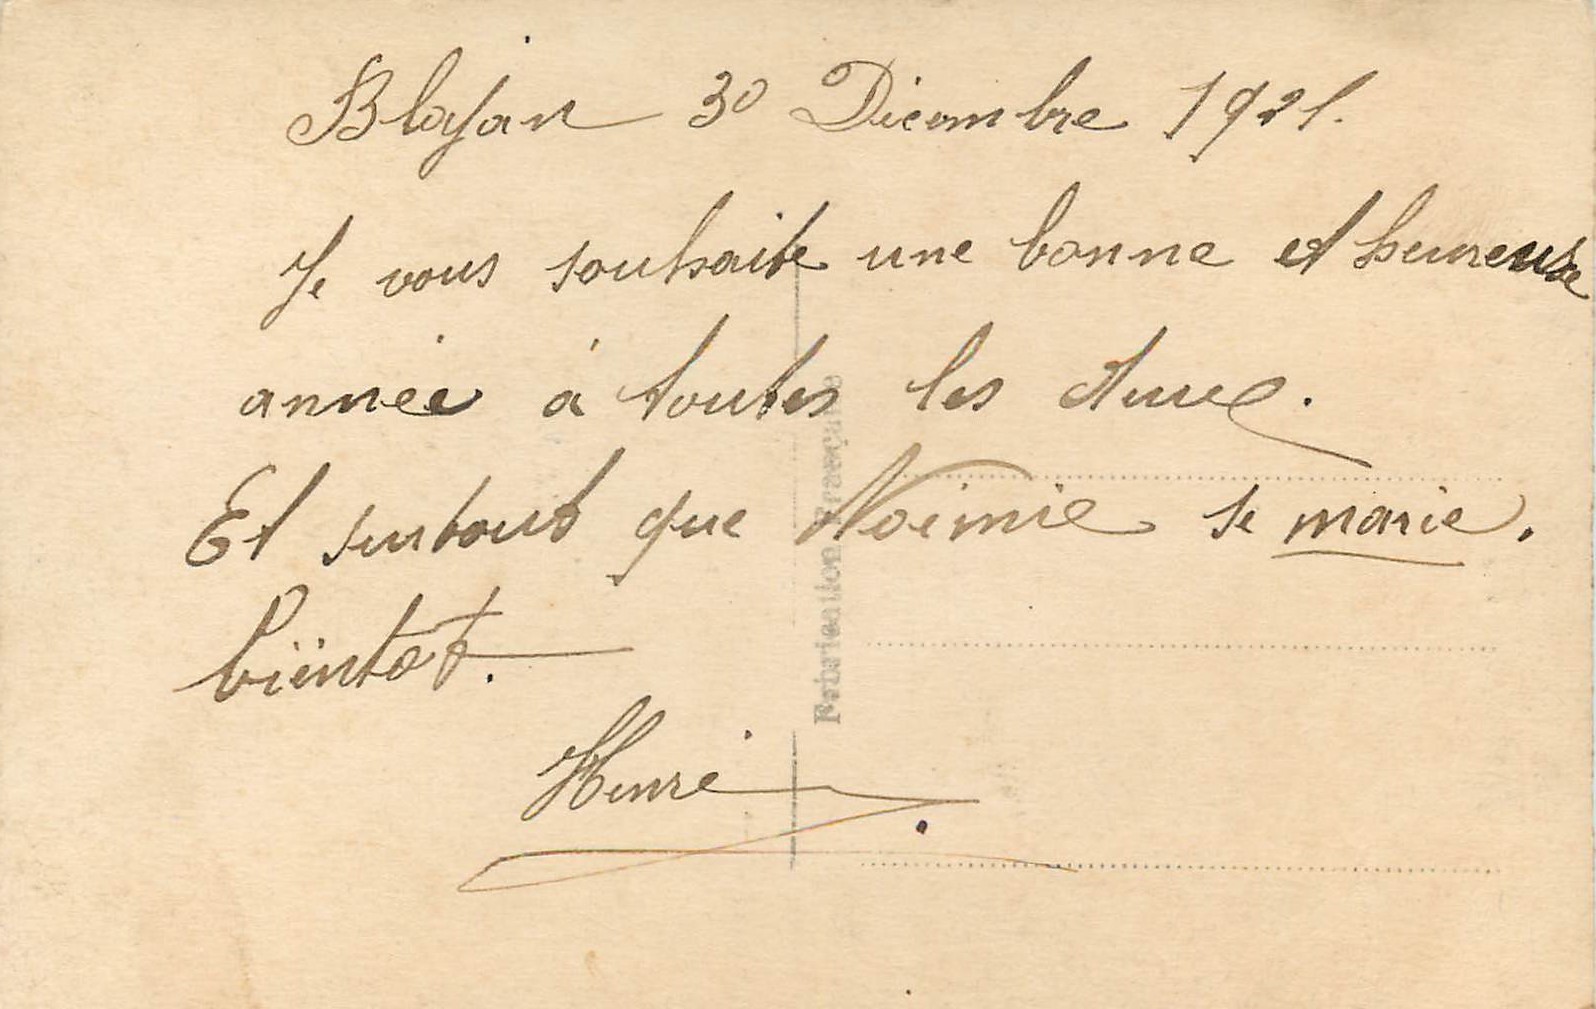 Blajan 30 Décembre 1921.
Je vous souhaite une bonne et heureuse
année à toutes les deux.
Et surtout que Noémie se marie.
bientôt.
Henri
Fabrication Française